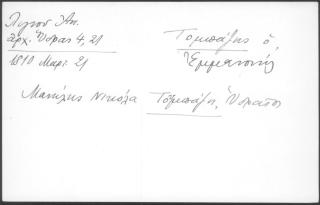 Λιγνοῦ Ἀντ.
ἀρχ. Ὕδρας 4, 21
1810 Μαρ. 21
Τομπάζης ὁ
Ἐμμανουήλ
Μανώλης Νικόλα Τομπάζη, Ὑδραῖος